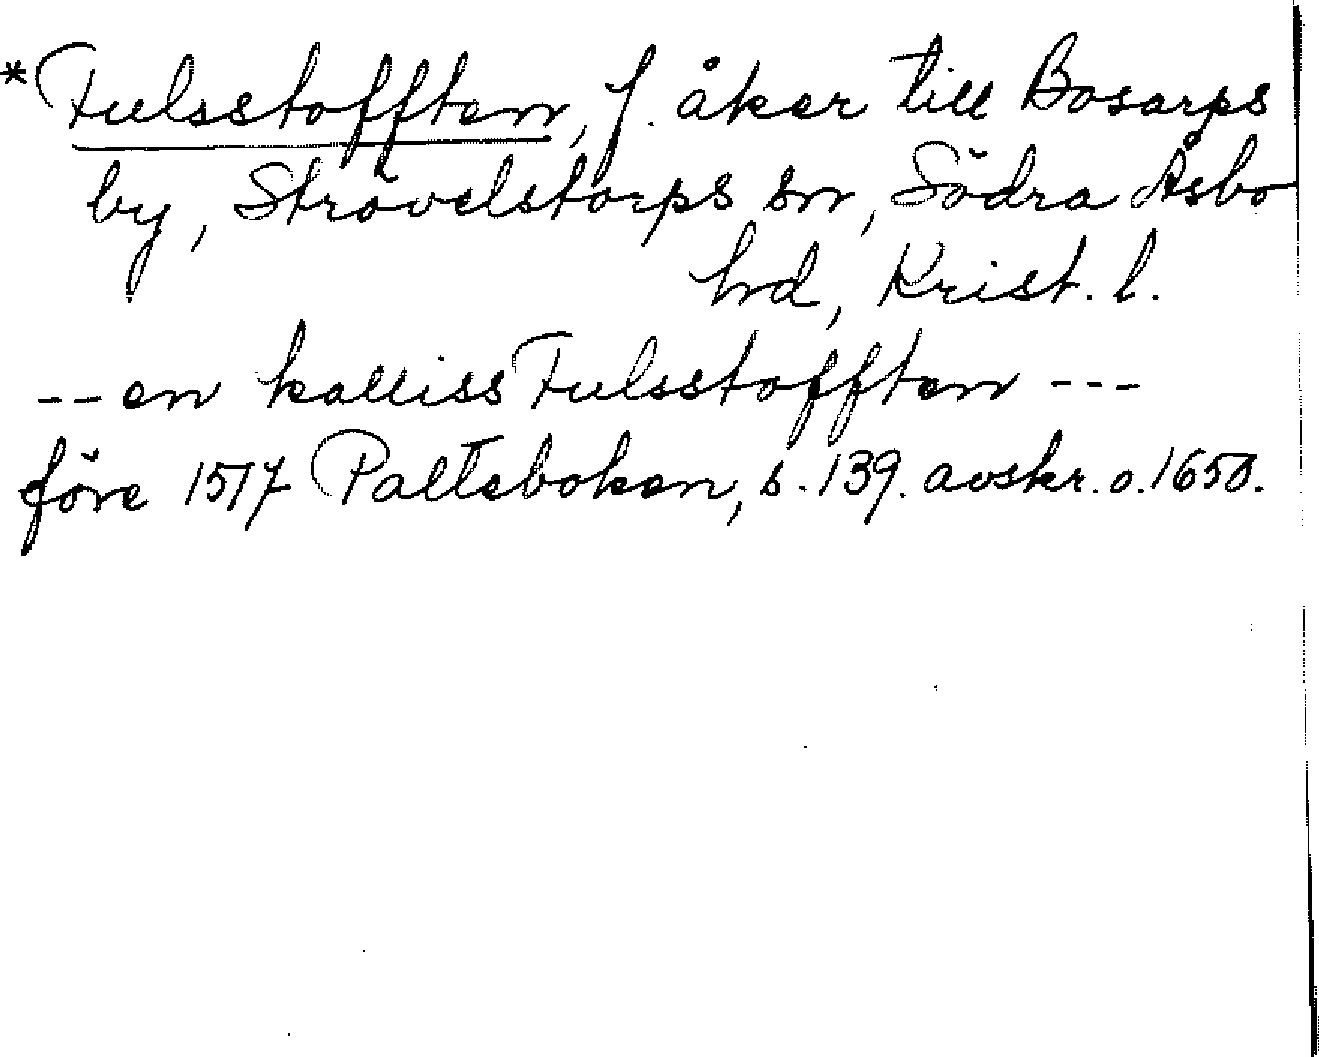 *Fulsstofften, f. åker till Bosarps
by, Strövelstorps sn, Södra Åsbo
hd, Krist. l.
--en kalliss Fulsstofften ---
före 1517 Palteboken, s. 139. avskr. o. 1650.